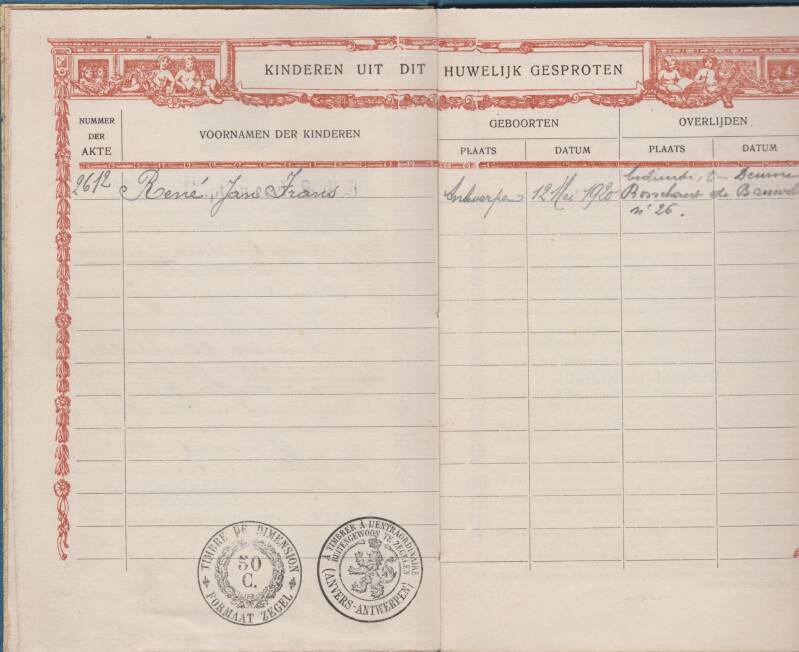 KINDEREN UIT DIT HUWELIJK GESPROTEN
NUMMER DER AKTE
VOORNAMEN DER KINDEREN
GEBOORTEN
OVERLIJDEN
PLAATS
DATUM
PLAATS
DATUM
2612 René Jans Frans Antwerpen 12 Mei 1920
Deurne
nr 26.
TIMBRE DE DIMENSION
50
C.
FORMAAT ZEGEL
A TIMBRER À L'EXTRAORDINAIRE
BUITENGEWOON TE ZEGELEN
(ANVERS-ANTWERPEN)